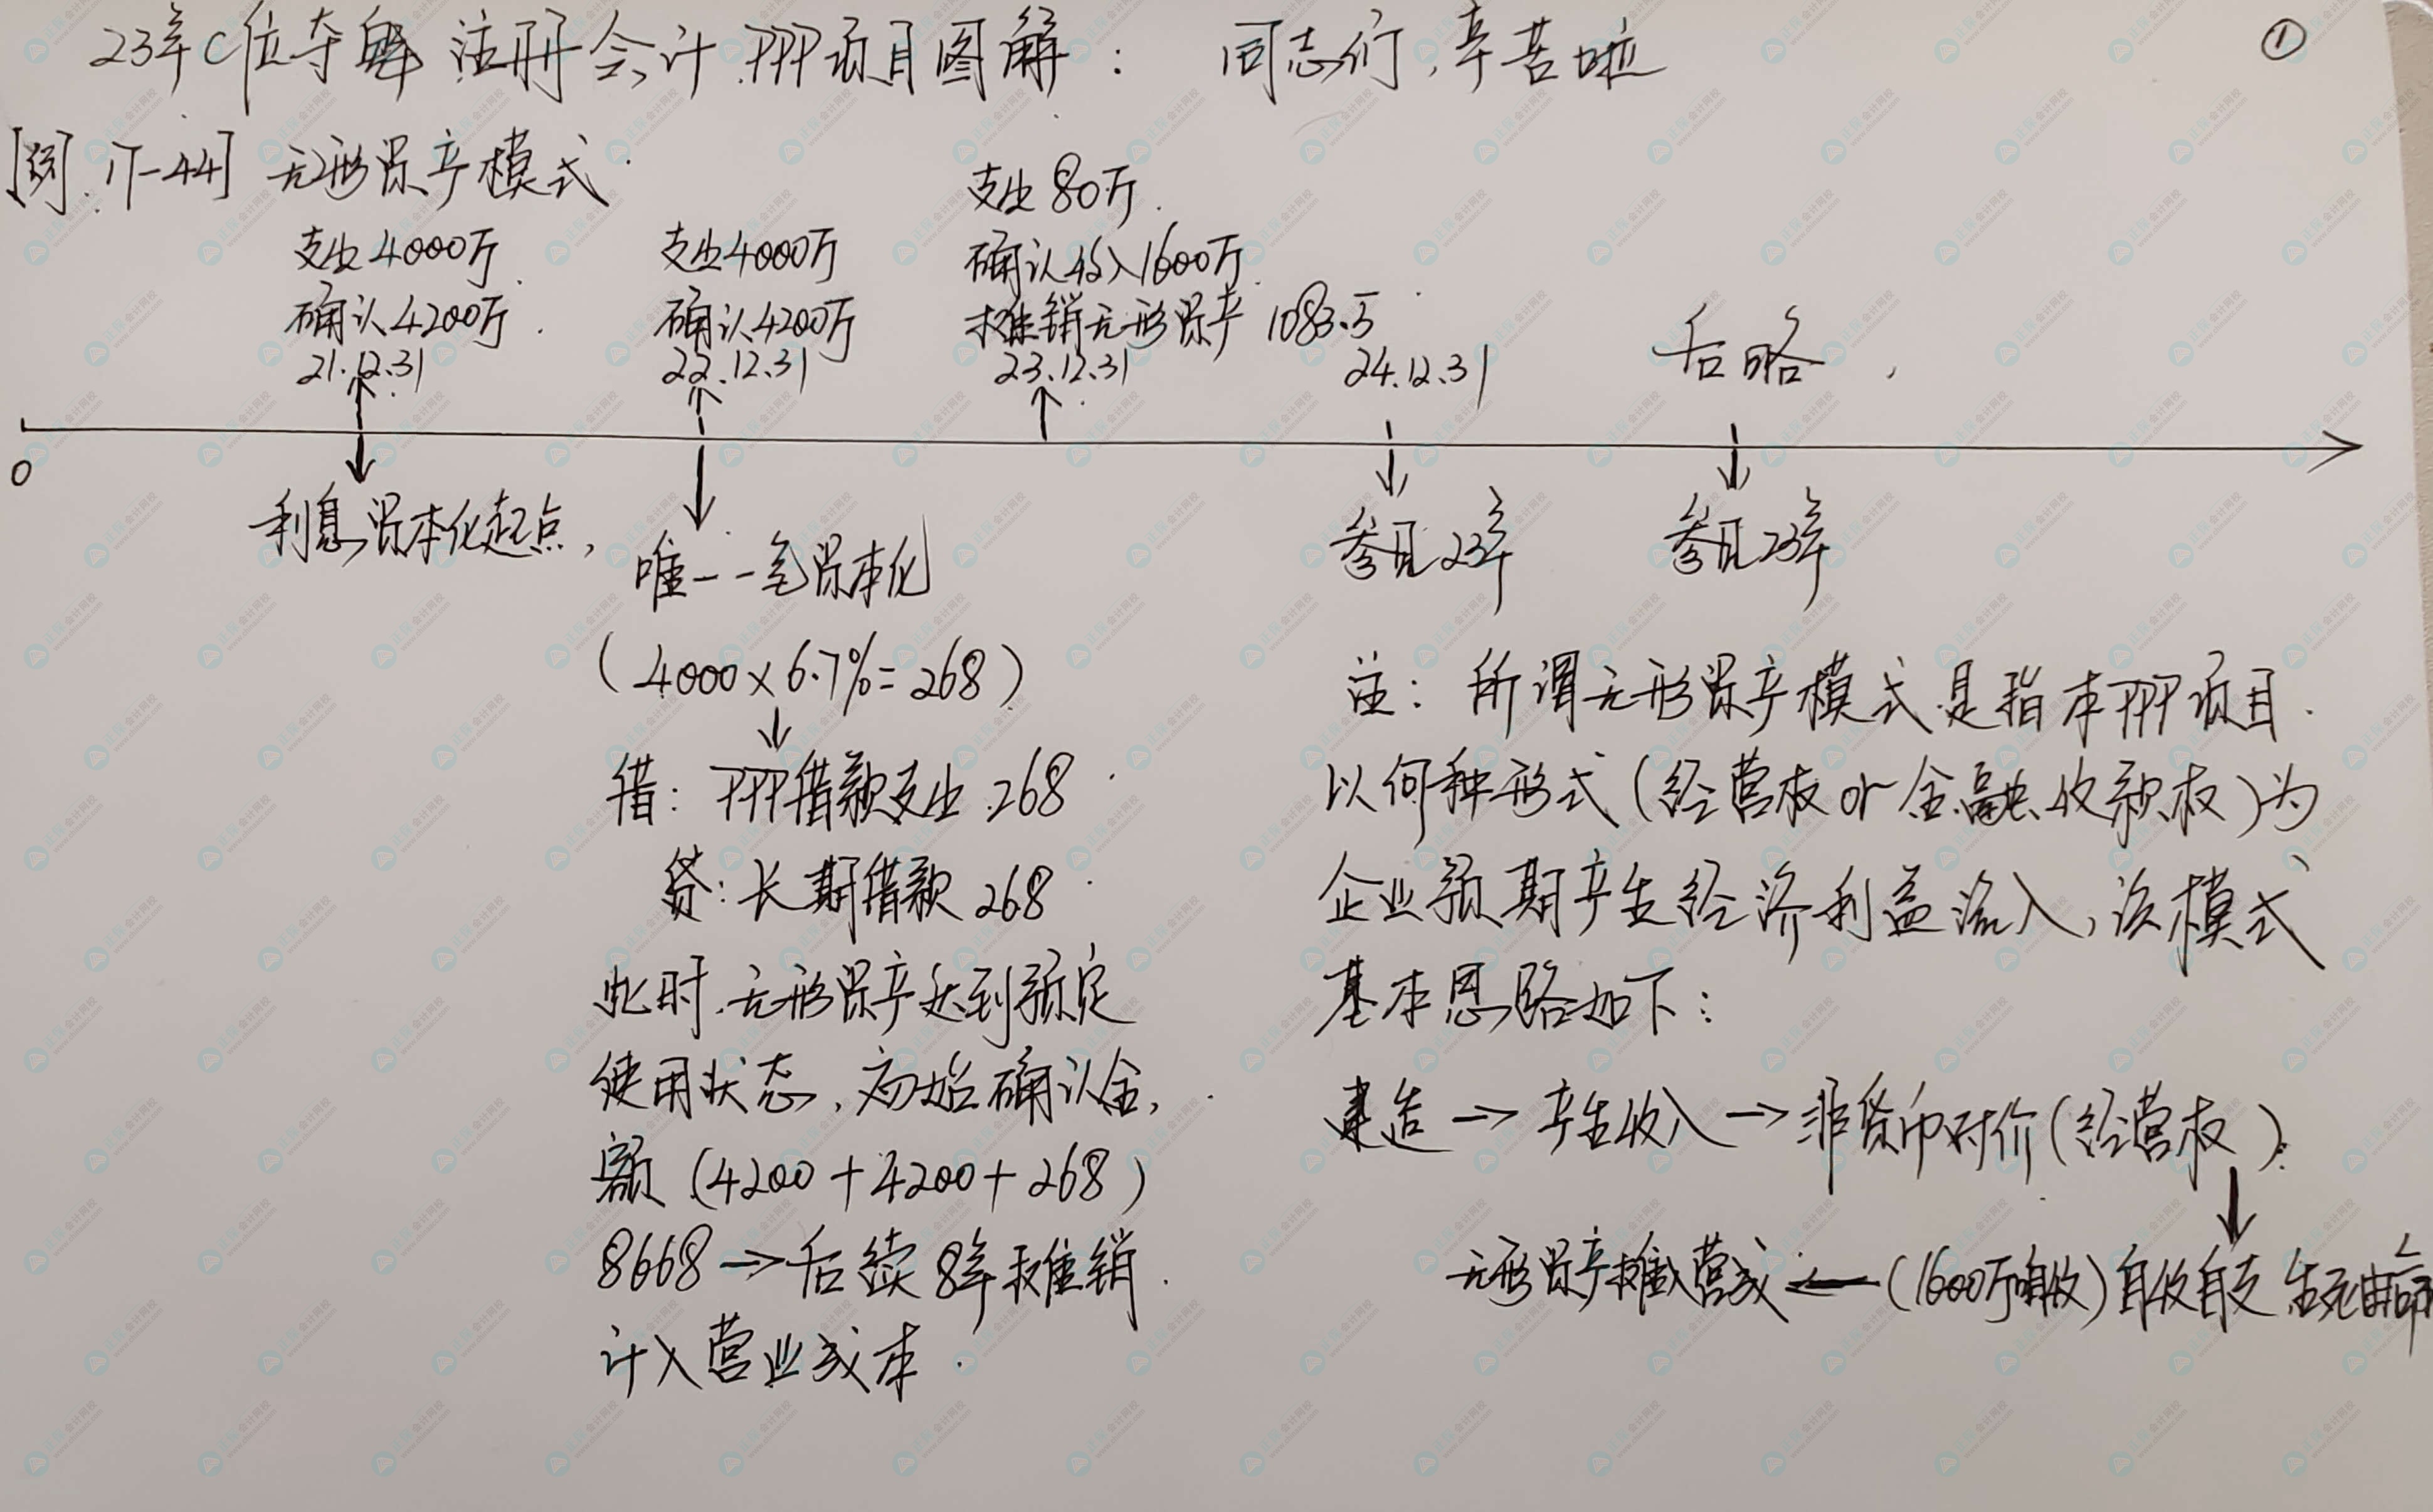 23年C位夺魁 注册会计 PPP项目图解： 同志们,辛苦啦
①
[例.17-44] 无形资产模式
支出4000万
确认4200万
21.12.31
支出4000万
确认4200万
22.12.31
支出80万
确认收入1600万
摊销无形资产 1083.5
23.12.31
24.12.31
后略
0
利息资本化起点,
唯一一笔资本化
(4000×6.7%=268)
借：PPP借款支出 268
贷：长期借款 268
此时,无形资产达到预定
使用状态,初始确认金
额 (4200+4200+268)
8668→后续8年摊销
计入营业成本
参见23年
参见23年
注：所谓无形资产模式是指本PPP项目
以何种形式(经营权or金融收款权)为
企业预期产生经济利益流入,该模式
基本思路如下：
建造→产生收入→非货币对价(经营权)
↓
无形资产摊入营成←(1600万自收)自收自支 生死由命
正保会计网校
www.chinaacc.com